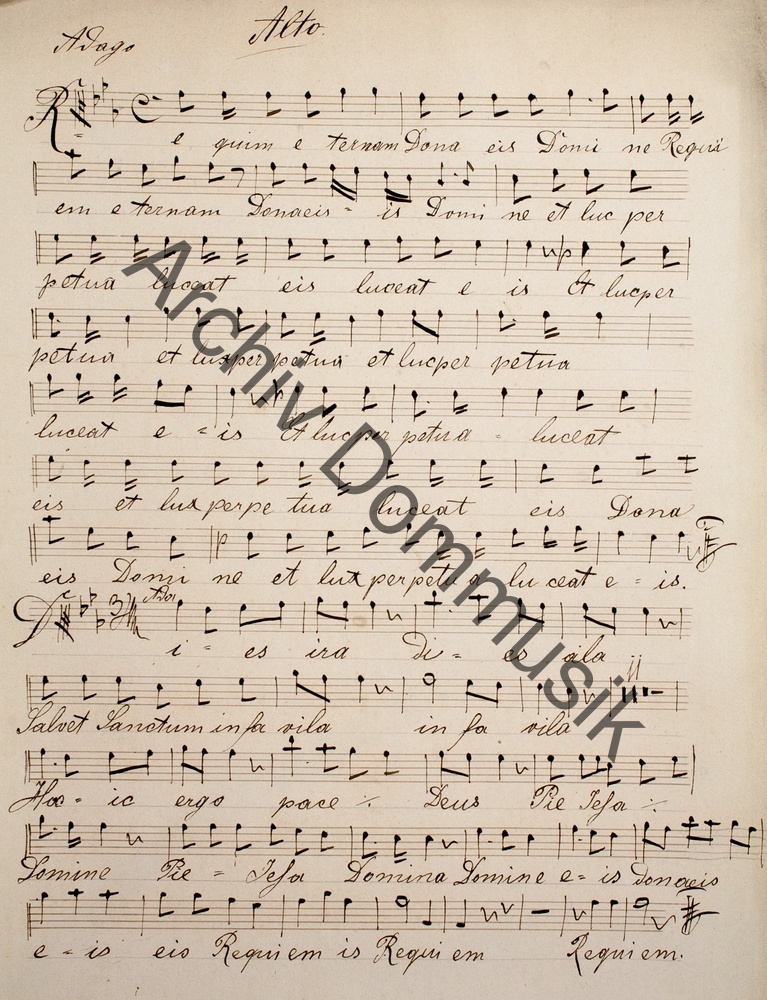 Alto.
Adago
Re quim e ternam Dona eis Domi ne Requi
em e ternam Donaeis = is Domi ne et luc per
petua luceat eis luceat e is Et lucper
petua et luxper petua et lucper petua
luceat e = is Et lucper petua = luceat
eis et lux perpe tua luceat eis Dona
eis Domi ne et lux perpetu a lu ceat e = is.
Di = es ira di = es ala
Salvet Sanctum in fa vila in fa vila
Hu = ic ergo pace ·/. Deus Pie Jesa ·/.
Domine Pie = Jesa Domina Domine e = is donaeis
e = is eis Requi em is Requi em Requi em.
Archiv Dommusik